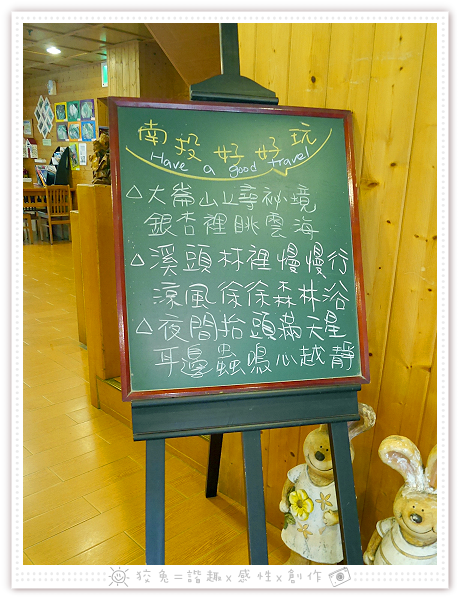 南投好好玩
Have a good travel
△大崙山上尋祕境
銀杏裡眺雲海
△溪頭林裡慢慢行
涼風徐徐森林浴
△夜間抬頭滿天星
耳邊蟲鳴心越靜
狡兔=諧趣x感性x創作